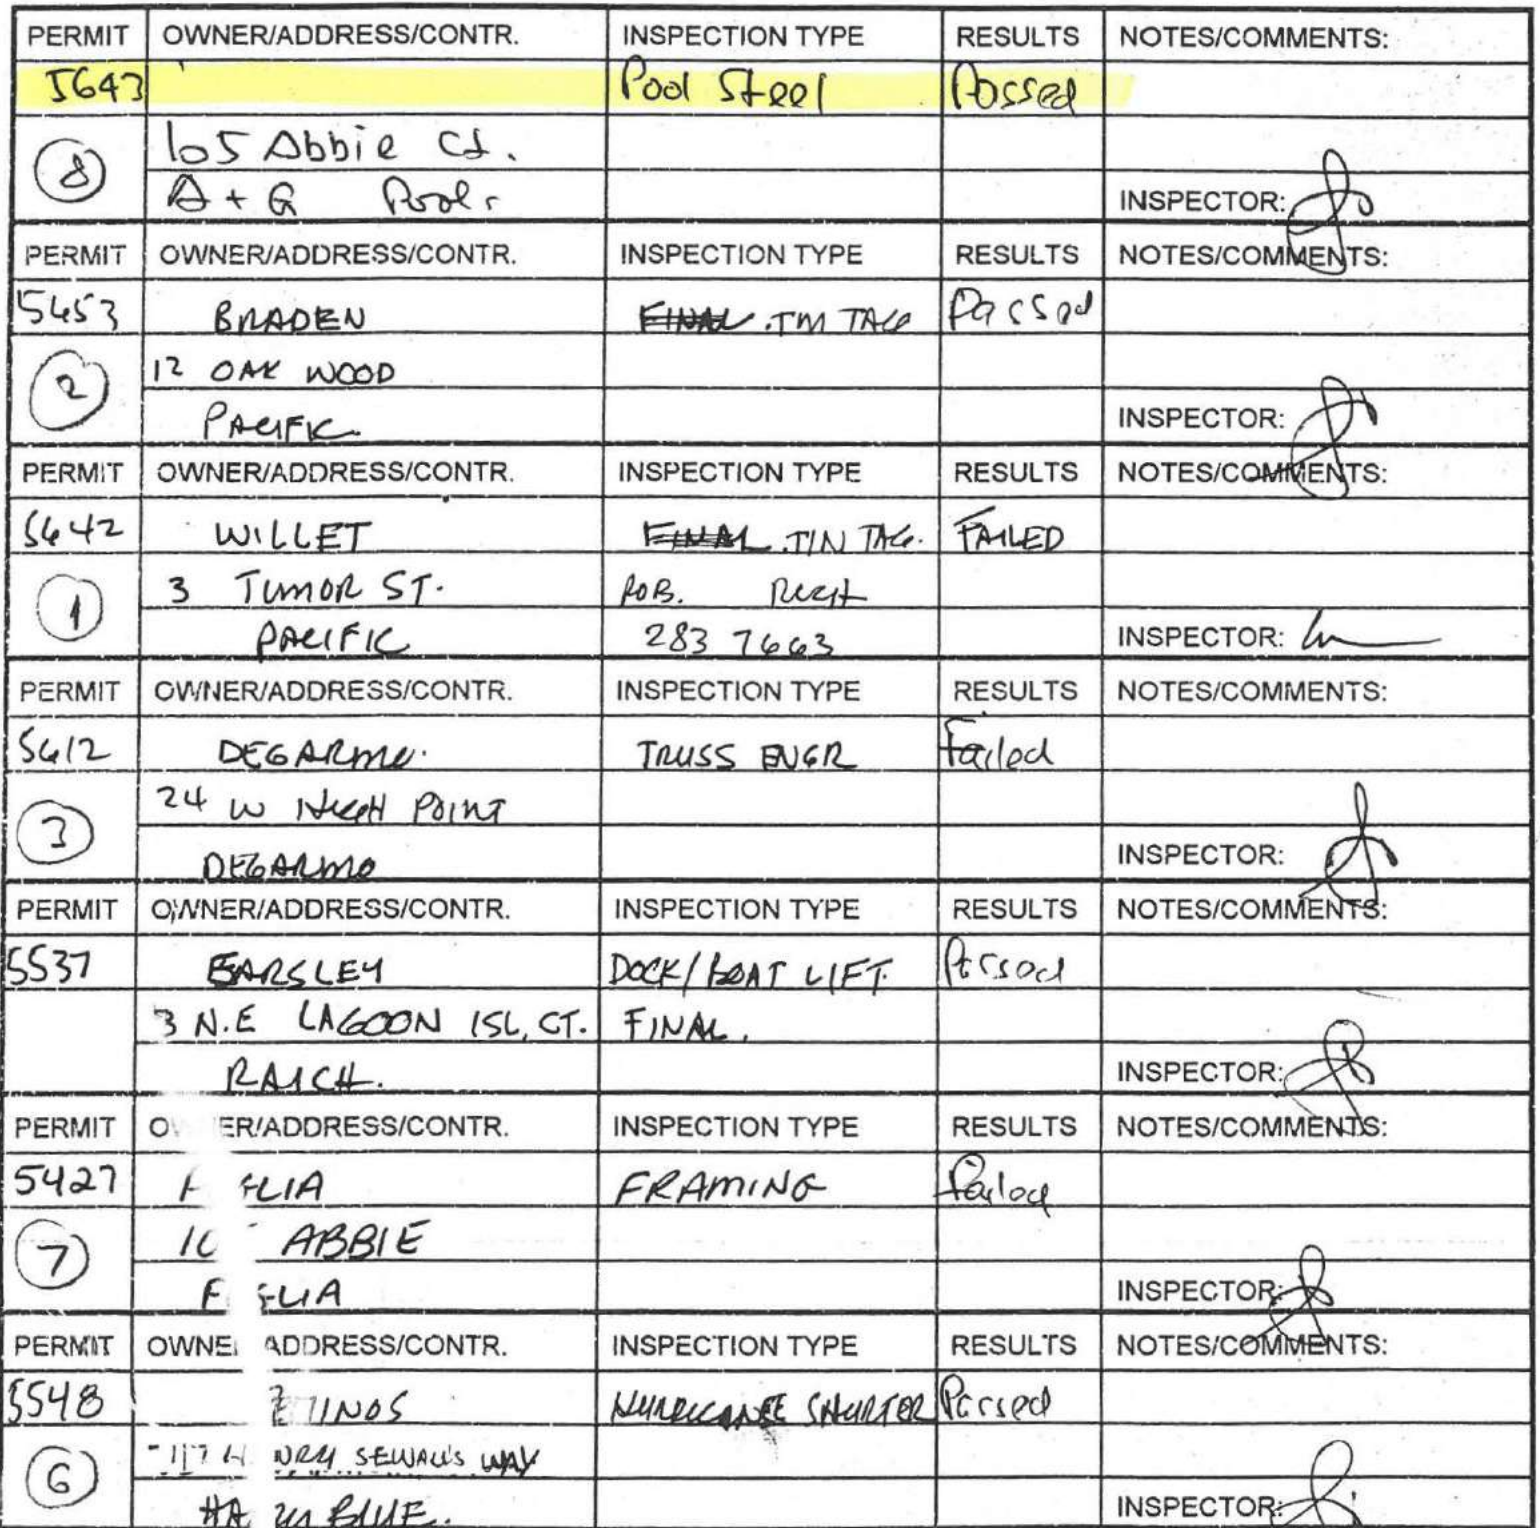 PERMIT OWNER/ADDRESS/CONTR. INSPECTION TYPE RESULTS NOTES/COMMENTS:
5643 Pool Steel Passed
8 105 Abbie Ct.
A + G Pools INSPECTOR:
PERMIT OWNER/ADDRESS/CONTR. INSPECTION TYPE RESULTS NOTES/COMMENTS:
5653 BRADEN FINAL TIN TAG Passed
2 12 OAK WOOD
PACIFIC INSPECTOR:
PERMIT OWNER/ADDRESS/CONTR. INSPECTION TYPE RESULTS NOTES/COMMENTS:
5642 WILLET FINAL TIN TAG. FAILED
1 3 TUMOR ST. ROB.
PACIFIC 283 7663 INSPECTOR:
PERMIT OWNER/ADDRESS/CONTR. INSPECTION TYPE RESULTS NOTES/COMMENTS:
5612 DEGARMO. TRUSS ENGR Failed
3 24 W HIGH POINT
DEGARMO INSPECTOR:
PERMIT OWNER/ADDRESS/CONTR. INSPECTION TYPE RESULTS NOTES/COMMENTS:
5537 EARSLEY DOCK/BOAT LIFT Passed
3 N.E LAGOON ISL, CT. FINAL.
RAICH. INSPECTOR:
PERMIT ER/ADDRESS/CONTR. INSPECTION TYPE RESULTS NOTES/COMMENTS:
5427 FRAMING Failed
7 ABBIE
INSPECTOR:
PERMIT OWNE ADDRESS/CONTR. INSPECTION TYPE RESULTS NOTES/COMMENTS:
5548 HURRICANE SHUTTER Passed
6 SEWALL'S WAY
BLUE. INSPECTOR: